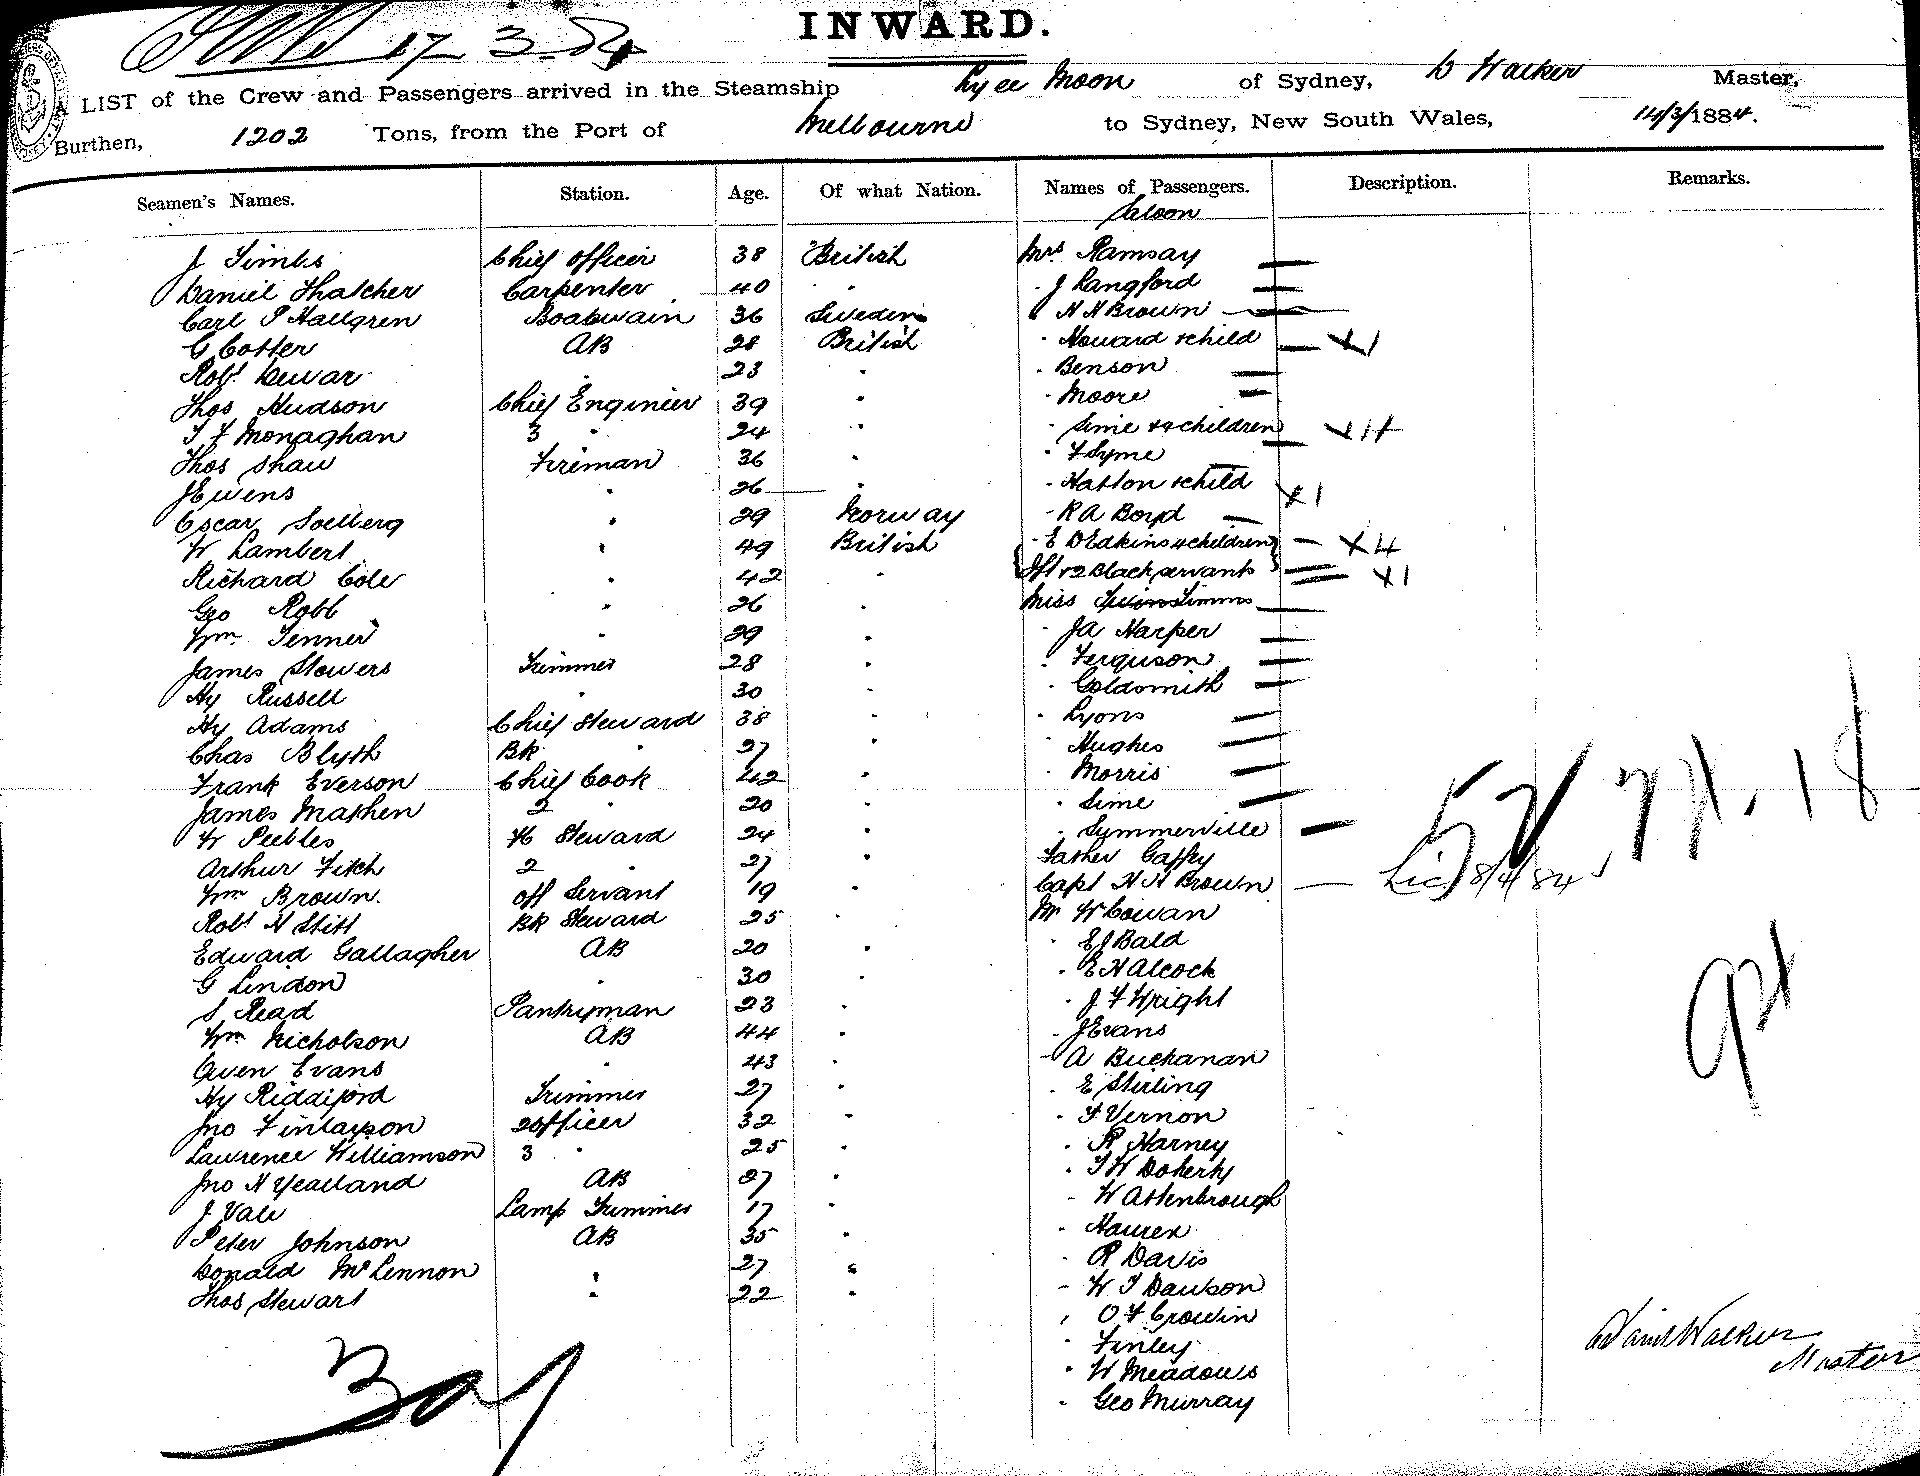 INWARD.
17 3 84
A LIST of the Crew and Passengers arrived in the Steamship Ly ee Moon of Sydney, D Walker Master,
Burthen, 1202 Tons, from the Port of Melbourne to Sydney, New South Wales, 14/3/1884.
Seamen's Names. Station. Age. Of what Nation. Names of Passengers. Description. Remarks.
Saloon
J Timbs Chief Officer 38 British Mrs Ramsay
Daniel Thatcher Carpenter 40 " " J Langford
Carl P Hallgren Boatswain 36 Sweden " H H Brown
G Cotter AB 28 British " Howard & child X1
Robt Dewar " 23 " " Benson
Thos Hudson Chief Engineer 39 " " Moore
T F Monaghan 3 " 24 " " Sime & 4 children X11
Thos Shaw Fireman 36 " " F Syme
J Ewens " 26 " " Hatton & child X1
Oscar Soelberg " 29 Norway " R A Boyd
W Lambert " 49 British " E D Edkins 4 children X4
Richard Cole " 42 " & 2 Black servants X1
Geo Robb " 26 " Miss Timms
Wm Jenner " 29 " " J A Harper
James Stowers Trimmer 28 " " Ferguson
Hy Russell " 30 " " Goldsmith
Hy Adams Chief Steward 38 " " Lyons
Chas Blyth BK " 27 " " Hughes
Frank Everson Chief Cook 42 " " Morris
James Mathen 2 " 20 " " Sime
W Peebles Steward 24 " " Summerville
Arthur Fitch 2 " 27 " Father Gaffry
Wm Brown. Off Servant 19 " Capt H H Brown 8/4/84
Robt H Stitt BK Steward 25 " Mr W Cowan
Edward Gallagher AB 20 " " E J Bald
G Lindon " 30 " " E H Alcock
S Read Pantryman 23 " " J F Wright
Wm Nicholson AB 44 " " J Evans
Owen Evans " 43 " " A Buchanan
Hy Riddiford Trimmer 27 " " E Stirling
Jno Finlayson 2 Officer 32 " " F Vernon
Lawrence Williamson 3 " 25 " " R Harney
Jno H Yealland AB 27 " " T W Doherty
J Vale Lamp Trimmer 17 " " W Attenbrough
Peter Johnson AB 35 " " Haurex
Donald McLennon " 27 " " R Davis
Thos Stewart " 22 " " W T Dawson
" O F Crowin
" Finley
" W Meadows
" Geo Murray
David Walker
Master